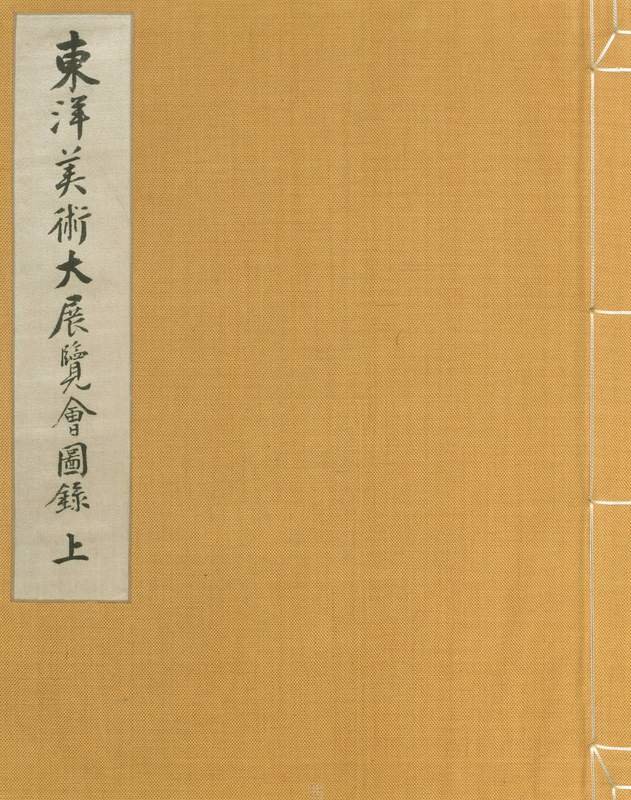 東洋美術大展覽會圖錄 上